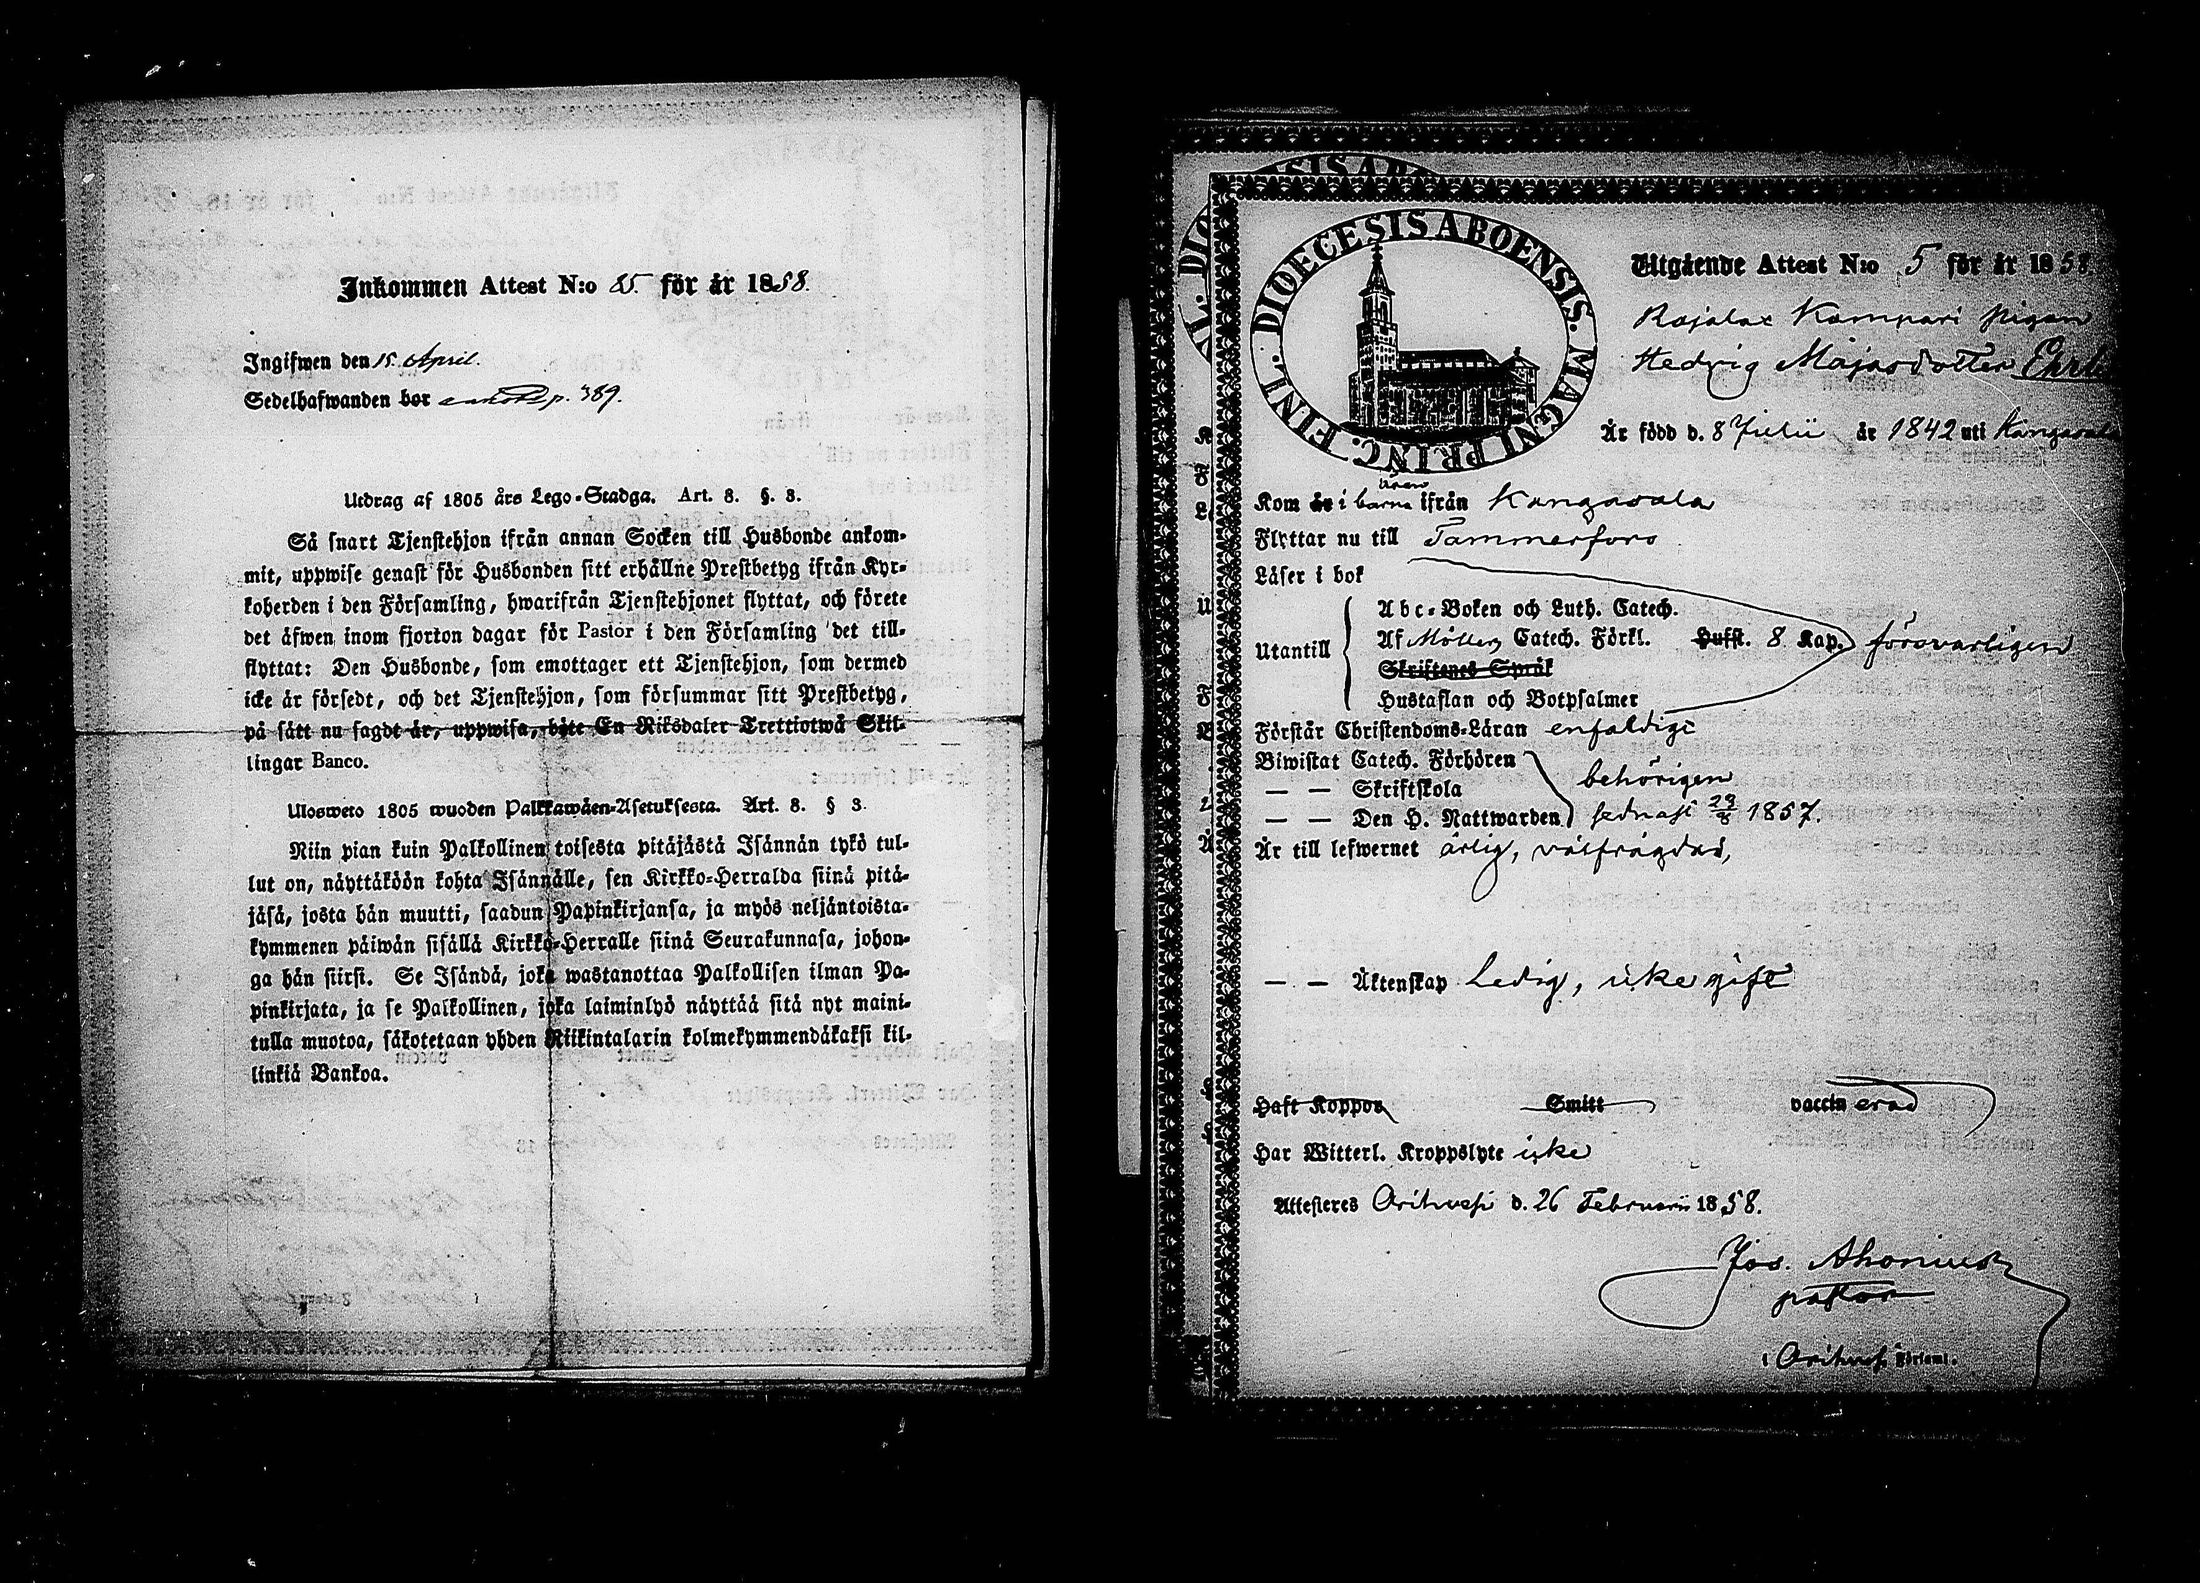 Inkommen Attest N:o 25. för år 1858.
Ingifwen den 15. April.
Sedelhafwanden bor p. 389.
Utdrag af 1805 års Lego-Stadga. Art. 8. §. 3.
Så snart Tjenstehjon ifrån annan Socken till Husbonde ankom-
mit, uppwise genast för Husbonden sitt erhållne Prestbetyg ifrån Kyr-
koherden i den Församling, hwarifrån Tjenstehjonet flyttat, och förete
det äfwen inom fjorton dagar för Pastor i den Församling det till-
flyttat: Den Husbonde, som emottager ett Tjenstehjon, som dermed
icke är försedt, och det Tjenstehjon, som försummar sitt Prestbetyg,
på sätt nu sagdt är, uppwisa, böte En Riksdaler Trettiotwå Skil-
lingar Banco.
Ulosweto 1805 wuoden Palkkawäen-Asetuksesta. Art. 8. § 3.
Niin pian kuin Palkollinen toisesta pitäjästä Isännän tykö tul-
lut on, näyttäköön kohta Isännälle, sen Kirkko-Herralda siinä pitä-
jäsä, josta hän muutti, saadun Papinkirjansa, ja myös neljäntoista-
kymmenen päiwän sisällä Kirkko-Herralle siinä Seurakunnasa, johon-
ga hän siirsi. Se Isändä, joka wastanottaa Palkollisen ilman Pa-
pinkirjata, ja se Palkollinen, joka laiminlyö näyttää sitä nyt maini-
tulla muotoa, sakotetaan yhden Riikintalarin kolmekymmendäkaksi kil-
linkiä Bankoa.
DIOECESIS ABOENSIS. MAGNI PRINC. FINL.
Utgående Attest N:o 5 för år 1858.
Rajalax Kampari pigan
Hedvig Majasdotter
Är född d. 8 Julii år 1842 uti Kangasala
Kom år i barna åren ifrån Kangasala
Flyttar nu till Tammerfors
Läser i bok
Utantill
Abc-Boken och Luth. Catech.
Af Catech. Förkl. Hufst. 8 Kap. försvarligen
Skriftenes Språk
Hustaflan och Botpsalmer
Förstår Christendoms-Läran enfaldigt
Biwistat Catech. Förhören behörigen
— — Skriftskola
— — Den H. Nattwarden sednast 1857.
Är till lefwernet ärlig, välfrägdad,
— — Äktenskap Ledig, icke gift
Haft Koppor Smitt vaccinerad
Har Witterl. Kroppslyte icke
Attesteres Orihvesi d. 26 Februarii 1858.
Jos. Ahonius
pastor
i Orihvesi Församl.